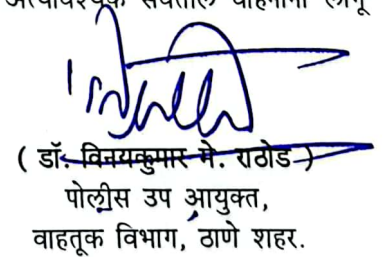 अत्यावश्यक सेवेतील वाहनांना लागू
( डॉ. विनयकुमार मे. राठोड )
पोलीस उप आयुक्त,
वाहतूक विभाग, ठाणे शहर.